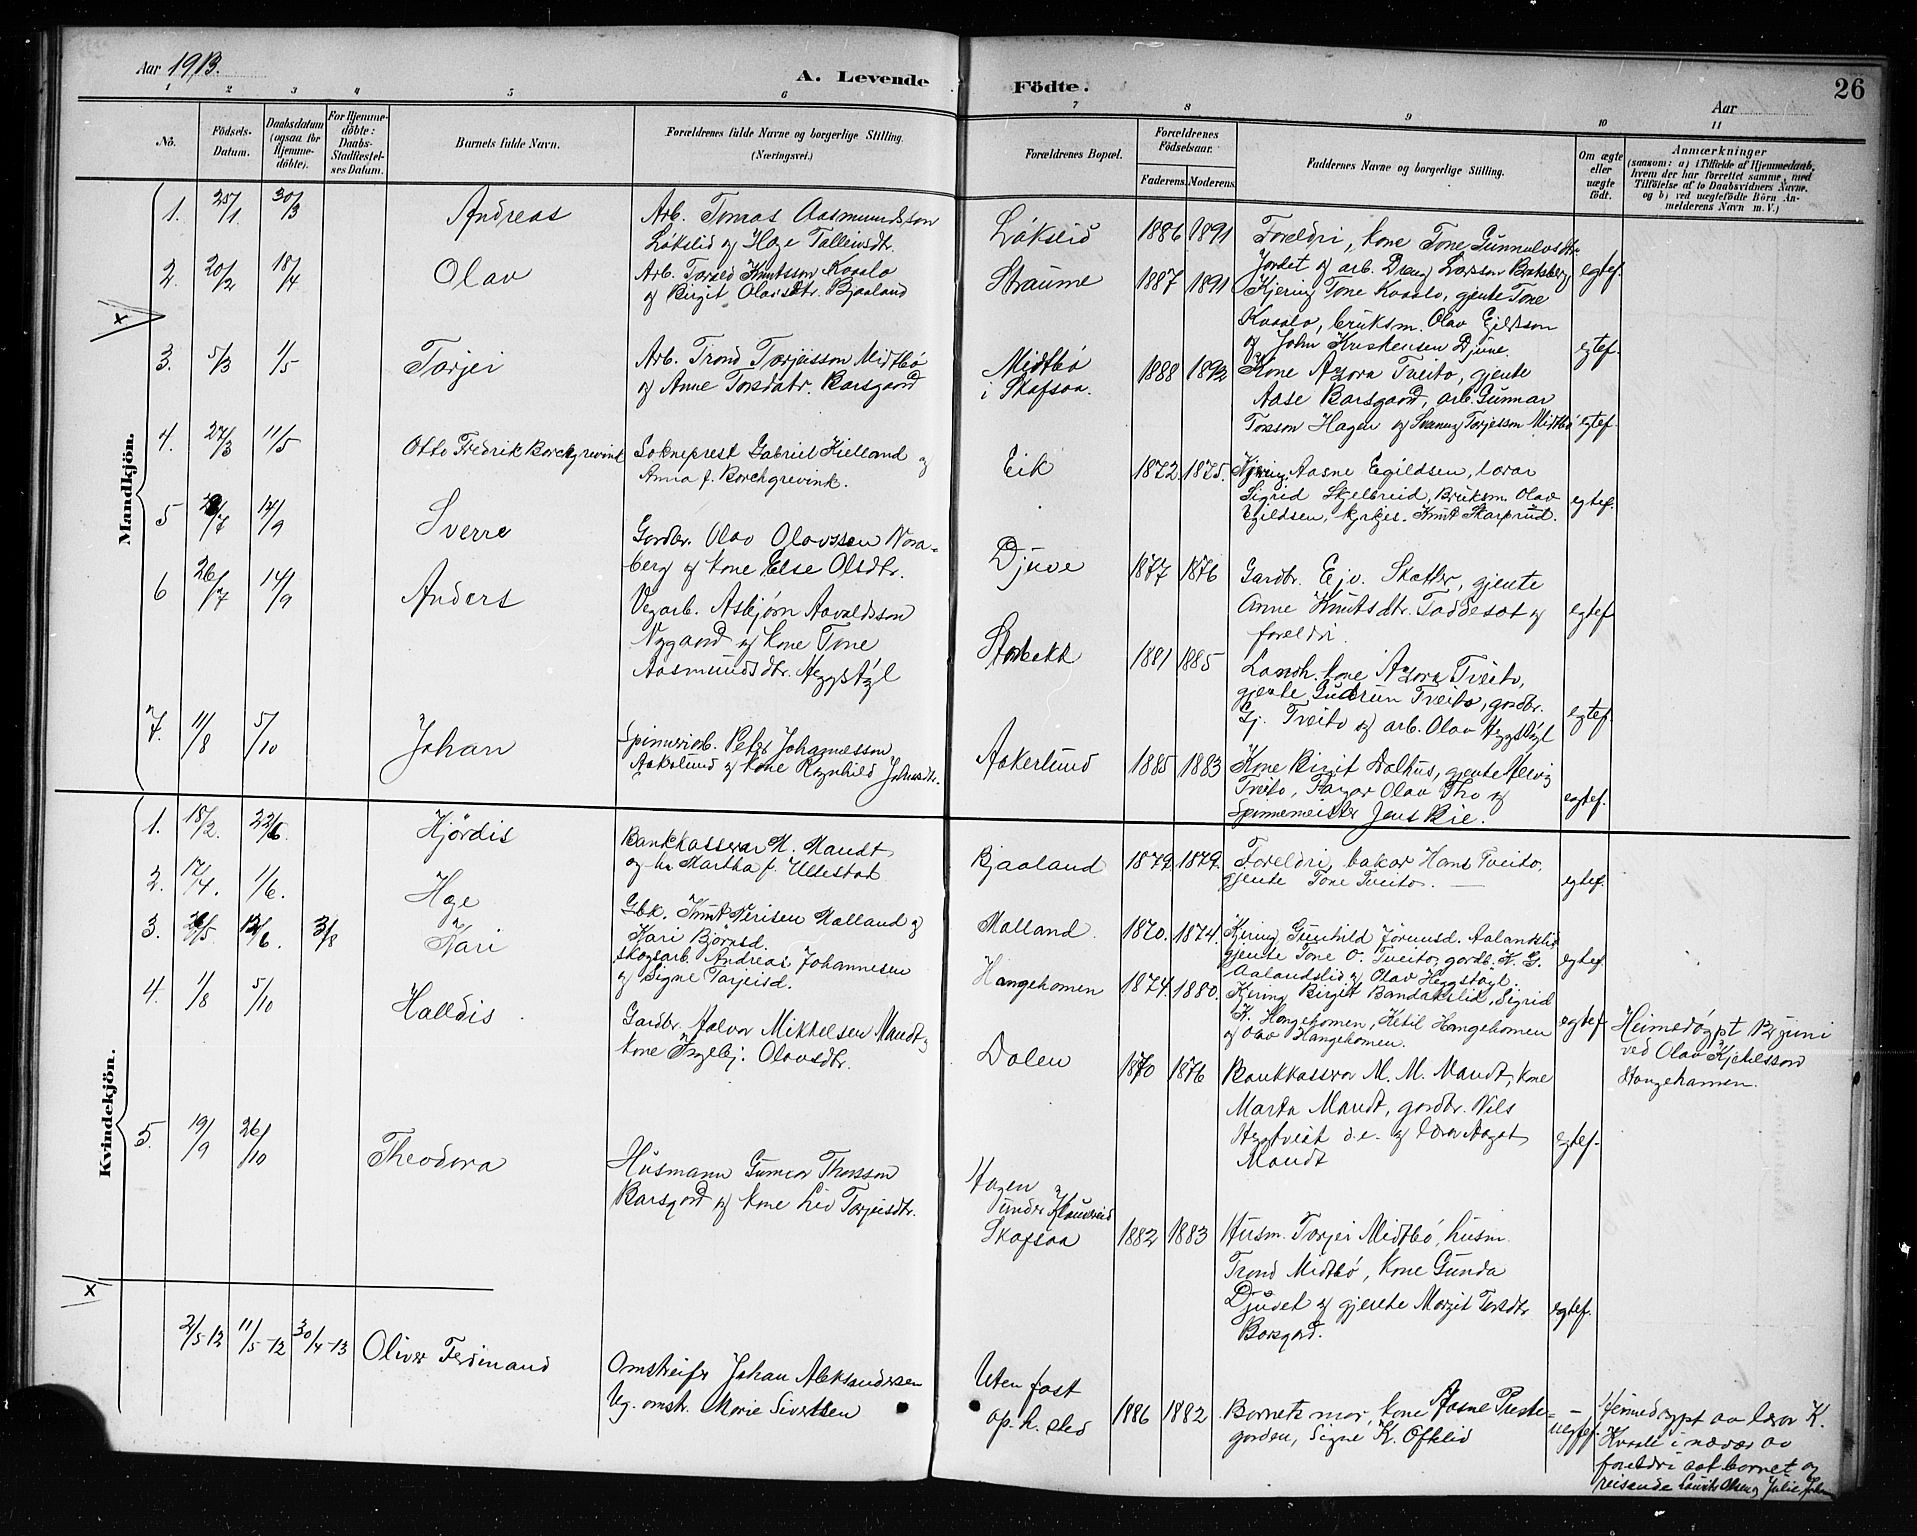 Aar 1913.
A. Levende
Födte.
26
Aar
1 2 3 4 5 6 7 8 9 10 11
No.
Födsels-Datum.
Daabsdatum (ogsaa for Hjemme-döbte).
For Hjemme-döbte: Daabs-Stadfæstel-ses Datum.
Barnets fulde Navn.
Forældrenes fulde Navne og borgerlige Stilling.
(Næringsvei.)
Forældrenes Bopæl.
Forældrenes Födselsaar.
Faderens. Moderens.
Faddernes Navne og borgerlige Stilling.
Om ægte eller uægte födt.
Anmærkninger
(saasom: a) i Tilfælde af Hjemmedaab, hvem der har forrettet samme, med Tilföielse af to Daabsvidners Navne, og b) ved uægtefödte Börn Anmelderens Navn m. V.)
Mandkjön.
1. 25/1 30/3 Andreas
Arb. Tomas Aasmundsson
Lökslid og Hæge Talleivsdtr.
Lökslid 1886 1891
Foreldri, kone Tone Gunnulvsdtr.
Jordet og arb. Dreng Larsson Baksberg
egtef.
2. 20/2 18/4 Olav
Arb. Torleiv Knutsson Kvaalo
og Birgit Olavsdtr. Bjaaland
Straume 1887 1891
Kjering Tone Kvaalo, gjente Tone
Kvaalo, bruksm. Olav Egildsson
og John Kristensen Djuve.
egtef.
3. 5/3 1/5 Torjei
Arb. Trond Torjeisson Midtbö
og Anne Torsdatr. Barsgaard
Midtbö
i Skafsaa.
1888 1892
Kone Azora Tveito, gjente
Aase Barsgaard, arb. Gunnar
Torsson Hagen og Svenung Torjeisson Midtbö
egtef
4. 27/3 11/5 Otto Fredrik Borchgrevink
Sokneprest Gabriel Kielland og
Anna f. Borchgrevink.
Eik 1872. 1875.
Kjering Aasne Egildsen, lærar
Sigrid Skjelbreid, Bruksm. Olav
Egildsen, kyrkjes. Knut Skarprud.
egtef.
5 /7 14/9 Sverre
Gardbr. Olav Olavssen Nora-
berg og kone Else Olsdtr.
Djuve 1877 1876
Gardbr. Ejv. Skatter, gjente
Anne Knutsdtr. Taddesæt og
foreldri.
egtef
6 26/7 14/9 Anders
Vegarb. Asbjörn Aavaldsson
Nygaard og kone Tone
Aasmundsdtr. Heggstöyl
Storbekk 1881 1885
Landh. kone Azora Tveito,
gjente Gudrun Tveito, gardbr.
Gj. Tveito og arb. Olav Heggstöyl
egtef.
7. 11/8 5/10 Johan
Spinneriarb. Peter Johannesson
Aakerlund og kone Ragnhild Johnsdtr.
Aakerlund 1885 1883
Kone Birgit Dalhus, gjente
Tveito, Olav Tho og
Spinnemeister Jens Bie.
egtef.
Kvindekjön.
1. 18/2. 22/6. Hjördis
Bankkasserar M. Mandt
og h. Martha f. Ullestad
Bjaaland 1879. 1879.
Foreldri, bakar Hans Tveito,
gjente Tone Tveito.
egtef.
2. 17/4. 1/6. Hæge
Gbk. Knut Nerisen Malland og
Kari Björnsd.
Malland. 1870. 1874.
Kjering Gunhild Jörunsd. Aalandslid
gjente Tone O. Tveito, gardb. K. G.
Aalandslid og Olav Heggstöyl.
egtef.
3. /5. /6. 3/8 Kari
Skogsarb. Andreas Johannesen
og Signe Tarjeisd.
Hangehomen 1874. 1880.
Kjering Birgit Bandakslid, Sigrid
K. Hangehomen, Ketil Hangehomen
og Olav Hangehomen.
egtef
Heimedöypt juni
ved Olav Kjetelsson
Hangehomen.
4. 1/8 5/10 Halldis
Gardbr. Aalvor Mikkelsen Mandt og
kone Ingebj. Olavsdtr.
Dalen 1870 1876
Bankkasserar M. M. Mandt, kone
Marta Mandt, gardbr. Nils
Heggtveit d.e. og lærar Aagot
Mandt
egtef.
5. 19/9 26/10 Theodora
Husmann Gunnar Thorsson
Barsgard og kone Liv Torjeisdtr.
Hagen
under
Skafsaa
1882 1883
Husm. Torjei Midtbö, husm.
Trond Midtbö, kone Gunda
Djuvet og gjente Margit Torsdtr
Barsgard.
egtef.
2/5-12 11/5-12 30/4-13 Oliver Ferdinand
Omstreifer Johan Aleksandersen
og omstr. Marie Sivertsen
Uten fast
op. h. sted
1886 1882
Barnets mor, kone Aasne Preste-
garden, Signe K. Ofteslid
uegtef.
Heimedöypt av lærar K.
Kvaale i nærvær av
foreldri aat barnet og
reisende Laurits Olsen og Julie Joh
x
x